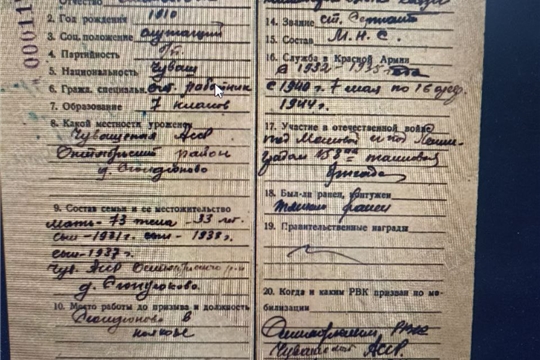 000111
Отчество
2. Год рождения 1910
3. Соц. положение служащий
4. Партийность б/п.
5. Национальность Чуваш
6. Гражд. специальн. работник
7. Образование 7 классов
8. Какой местности уроженец
Чувашская АССР
Октябрьский район
д.
9. Состав семьи и ее местожительство
мать-73 жена-33 лет.
сын-1931г. сын-1935г.
сын-1937г.
Чув. АССР
д.
10. Место работы до призыва и должность
в
колхозе
14. Звание ст. Сержант
15. Состав М.Н.С.
16. Служба в Красной Армии
С 1932-1935 года
С 1940г 7 мая по 16
1944г.
17. Участие в отечественной войне
под Москвой и под Ленин-
градом танковая
бригада
18. Был-ли ранен, контужен
тяжело ранен
19. Правительственные награды
20. Когда и каким РВК призван по мо-
билизации
РВК
Чувашской АССР